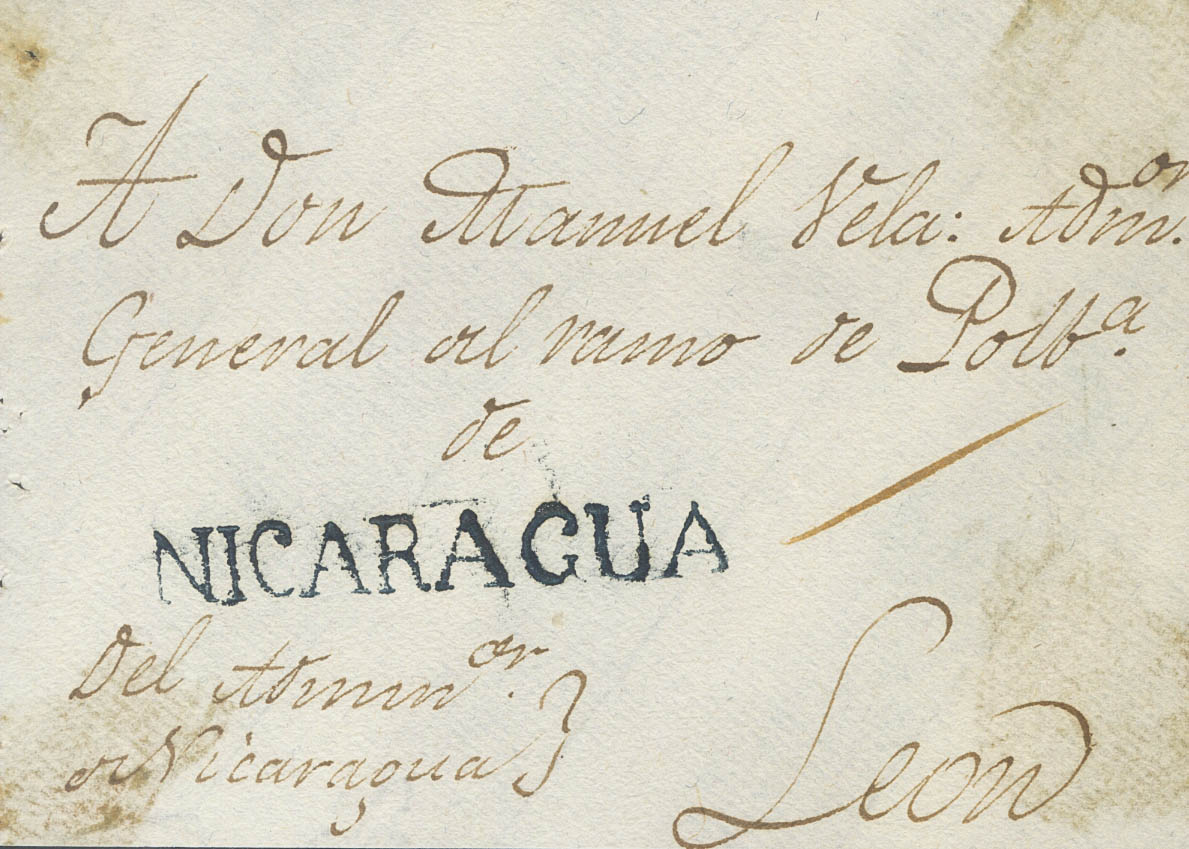 A Don Manuel Vela: Adm.or
General al ramo de Polb.a
de
NICARAGUA
Del Adminor.
de Nicaragua
Leon